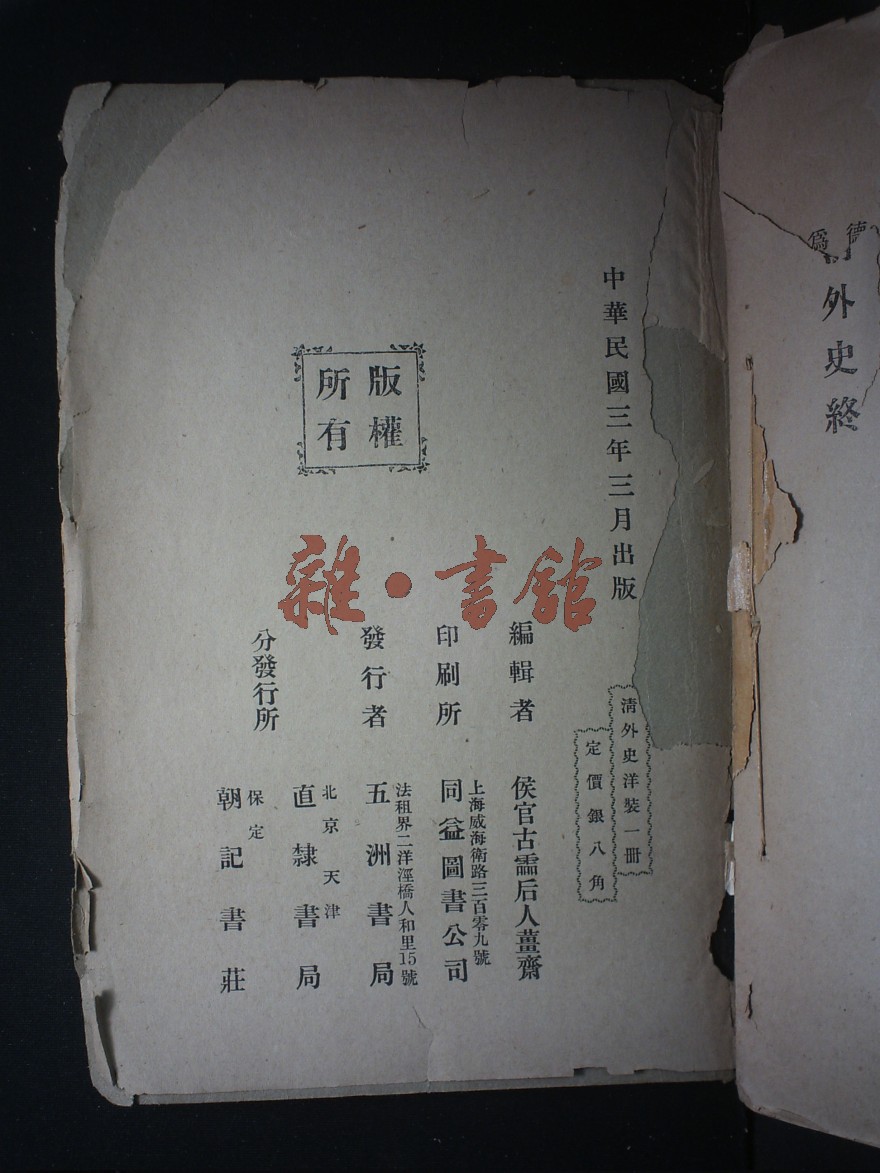 德
爲
外史終
中華民國三年三月出版
清外史洋裝一冊
定價銀八角
版權
所有
編輯者 侯官古靈后人薑齋
印刷所 上海威海衛路三百零九號
同益圖書公司
發行者 法租界二洋涇橋人和里15號
五洲書局
分發行所 北京天津
直隸書局
保定
朝記書莊
雜·書館